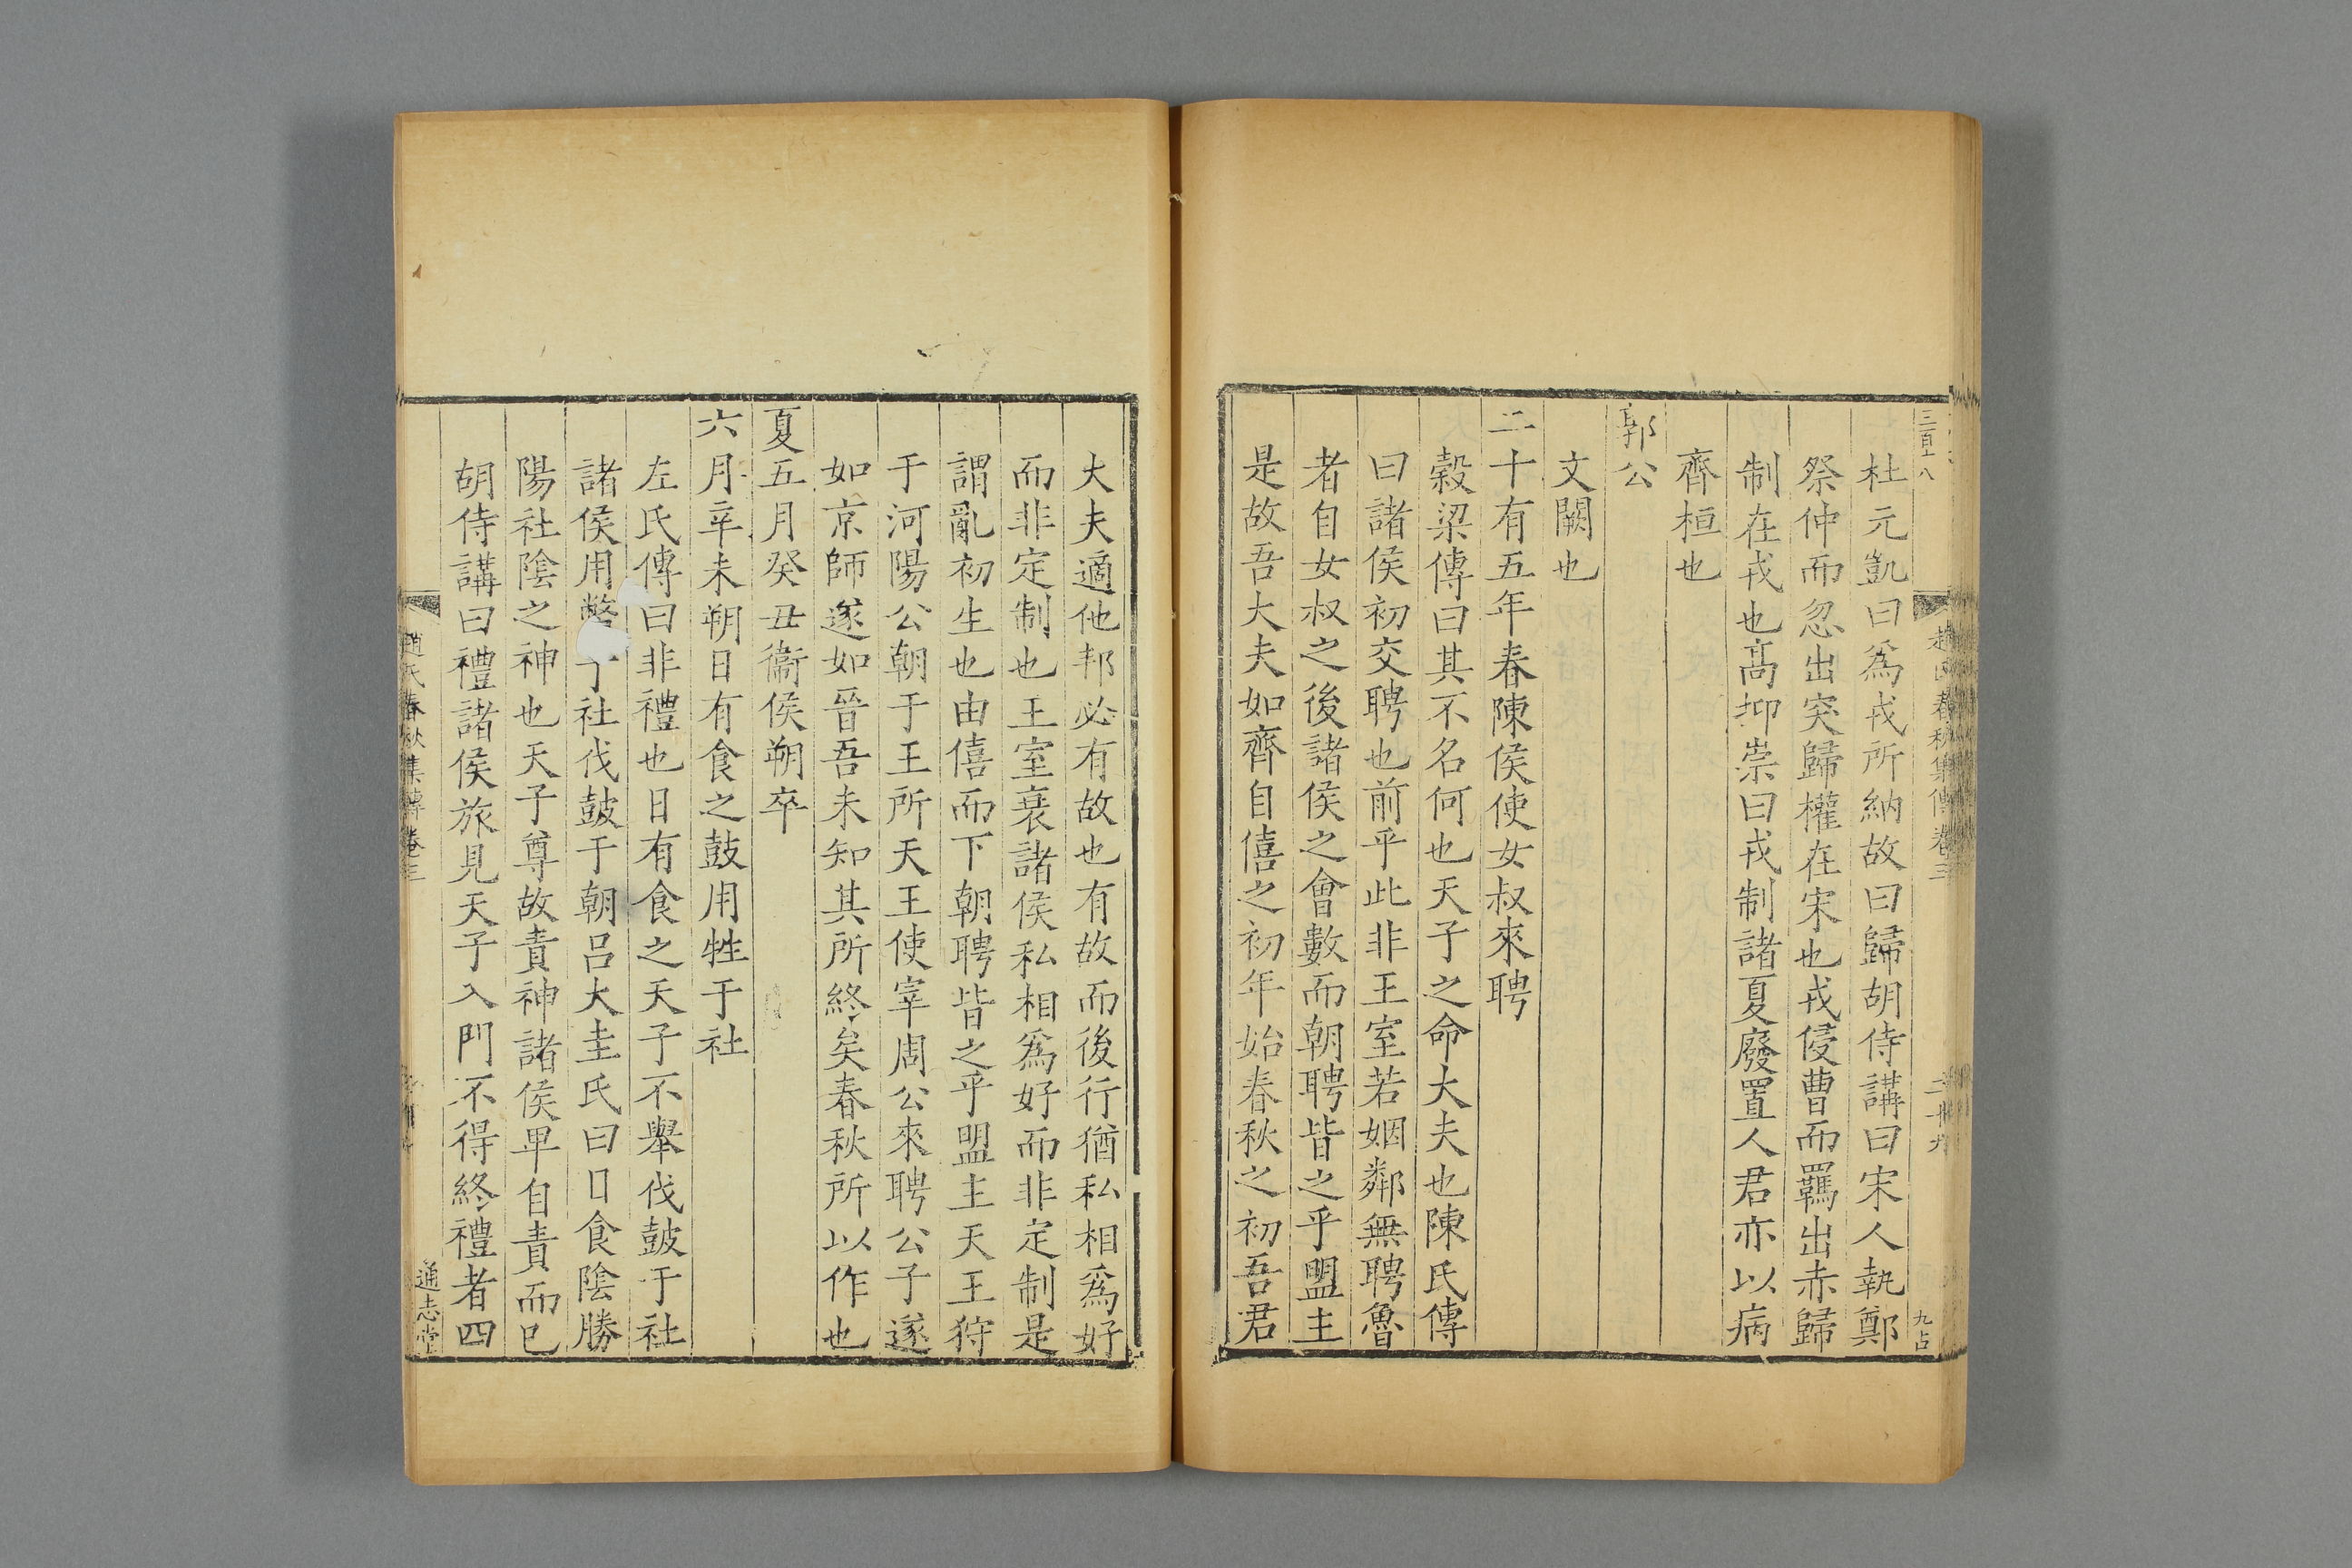 三百十八
杜元凱曰爲戎所納故曰歸胡侍講曰宋人執鄭
祭仲而忽出突歸權在宋也戎侵曹而羈出赤歸
制在戎也髙抑崇曰戎制諸夏廢置人君亦以病
齊桓也
郭公
文闕也
二十有五年春陳侯使女叔來聘
穀梁傳曰其不名何也天子之命大夫也陳氏傳
曰諸侯初交聘也前乎此非王室若姻鄰無聘魯
者自女叔之後諸侯之會數而朝聘皆之乎盟主
是故吾大夫如齊自僖之初年始春秋之初吾君
大夫適他邦必有故也有故而後行猶私相爲好
而非定制也王室衰諸侯私相爲好而非定制是
謂亂初生也由僖而下朝聘皆之乎盟主天王狩
于河陽公朝于王所天王使宰周公來聘公子遂
如京師遂如晉吾未知其所終矣春秋所以作也
夏五月癸丑衞侯朔卒
六月辛未朔日有食之鼓用牲于社
左氏傳曰非禮也日有食之天子不舉伐鼓于社
諸侯用幣于社伐鼓于朝呂大圭氏曰日食陰勝
陽社陰之神也天子尊故責神諸侯卑自責而已
胡侍講曰禮諸侯旅見天子入門不得終禮者四
趙氏春秋集傳卷三
通志堂